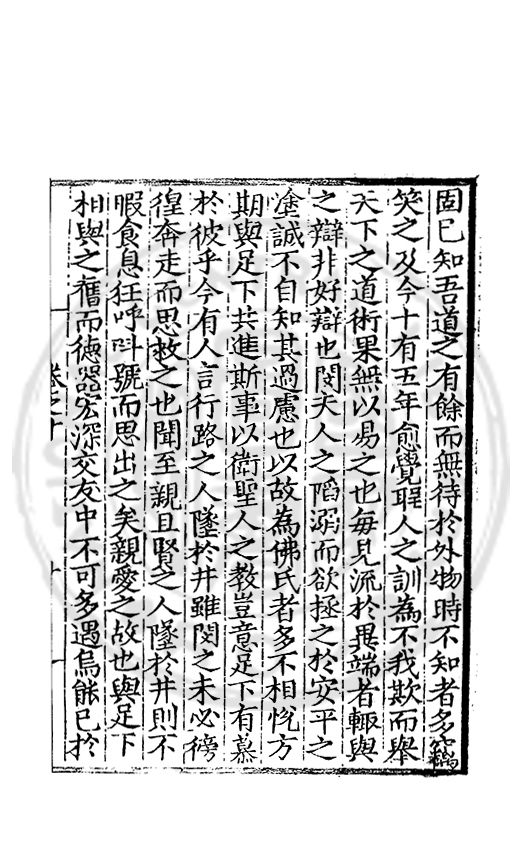 固已知吾道之有餘而無待於外物時不知者多竊
笑之及今十有五年愈覺聖人之訓為不我欺而舉
天下之道術果無以易之也每見流於異端者輒與
之辯非好辯也閔夫人之陷溺而欲拯之於安平之
塗誠不自知其過慮也以故為佛氏者多不相悅方
期與足下共進斯事以衛聖人之教豈意足下有慕
於彼乎今有人言行路之人墜於井雖閔之未必徬
徨奔走而思救之也聞至親且賢之人墜於井則不
暇食息狂呼叫號而思出之矣親愛之故也與足下
相與之舊而德器宏深交友中不可多遇烏能已於
卷之十